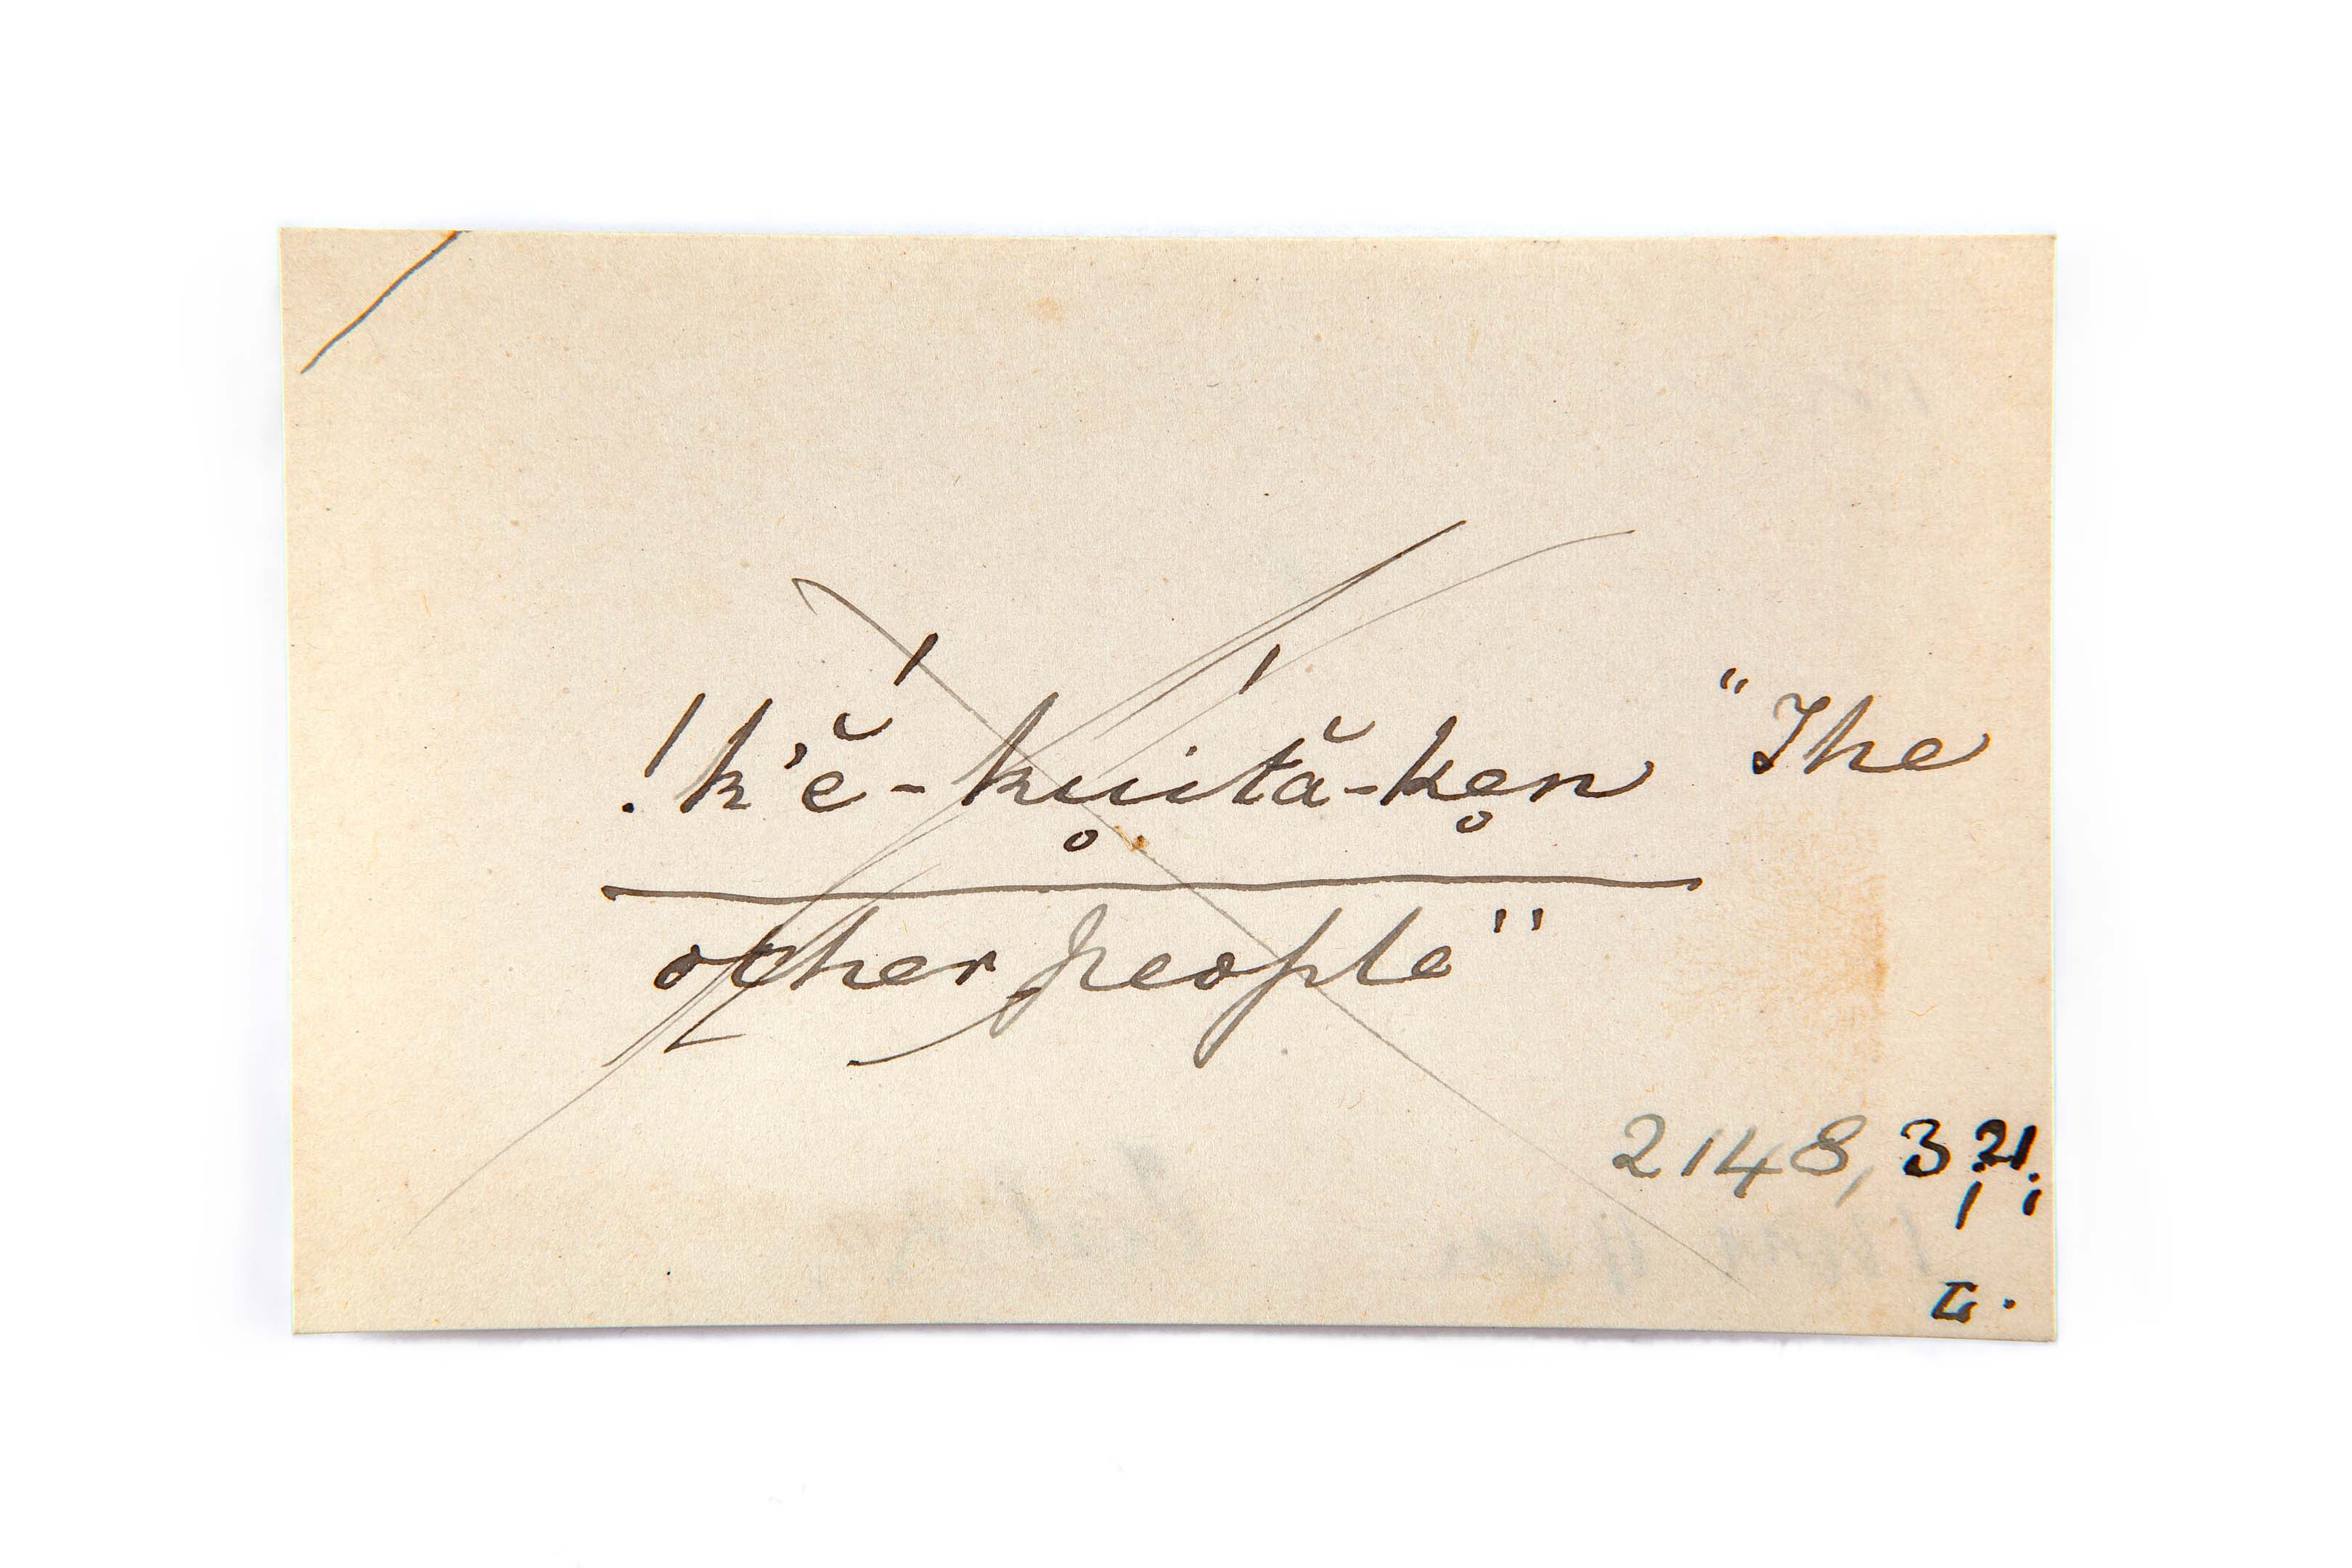 !k'ĕ́-ku̥itắ-ke̥n "The
other people"
2148, 3
L.